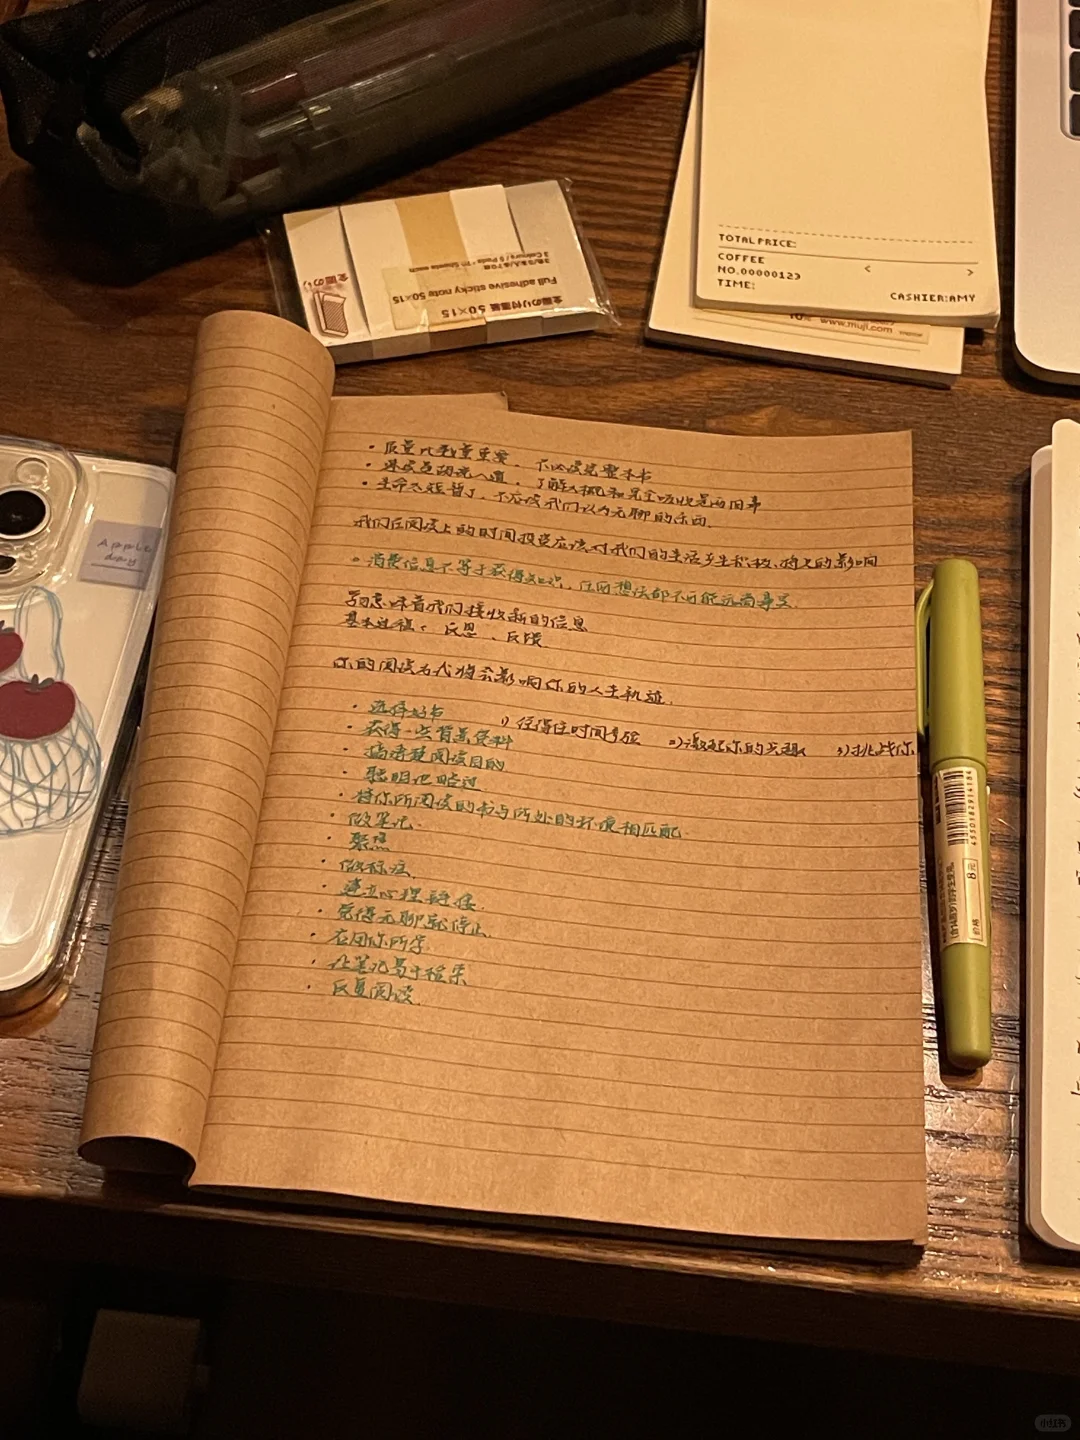 TOTAL PRICE:
COFFEE
NO.00000123
< >
TIME:
CASHIER:AMY
10%
www.muji.com
全面のり付箋紙 50×15
Full adhesive sticky note 50×15
Apple
day
• 质量比数量重要。不必读完整本书
• 速读是胡说八道，了解大概和完全吸收是两回事
• 生命太短暂了，不应读我们认为无聊的东西。
我们在阅读上的时间投资应该对我们的生活产生积极、持久的影响
• 消费信息不等于获得知识，任何想法都不可能远离事实.
意味着我们接收新的信息
基本过程： 反思、反馈
你的阅读方式将会影响你的人生轨迹.
• 选择好书 1) 经得住时间考验 2) 激起你的兴趣 3) 挑战你
• 获得一些背景资料
• 搞清楚阅读目的
• 聪明地略过
• 将你所阅读的书与所处的环境相匹配.
• 做笔记.
• 聚焦
• 做标注.
• 建立心理链接.
• 觉得无聊就停止.
• 应用你所学.
• 让笔记易于检索
• 反复阅读.
4550182914184
8元
小红书